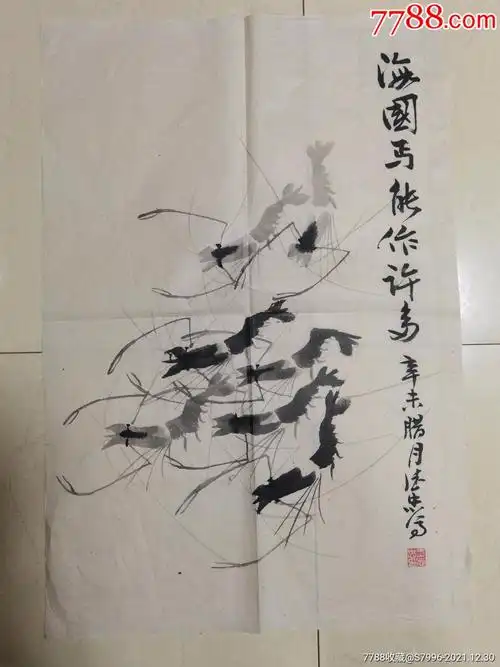 7788.com
海國焉能作许多
辛未腊月 写
7788收藏@S7996-2021.12.30